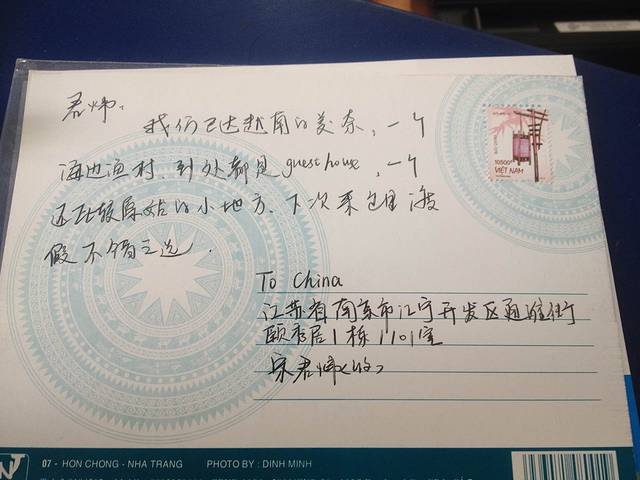 君炜、
我们已达越南的美奈，一个
海边渔村，到处都是guest house，一个
还比较原始的小地方，下次来这里渡
假不错之选.
10500đ
VIỆT NAM
To China
江苏省南京市江宁开发区通淮街
颐秀居1栋1101室
宋君炜(收)
07 - HON CHONG - NHA TRANG PHOTO BY : DINH MINH